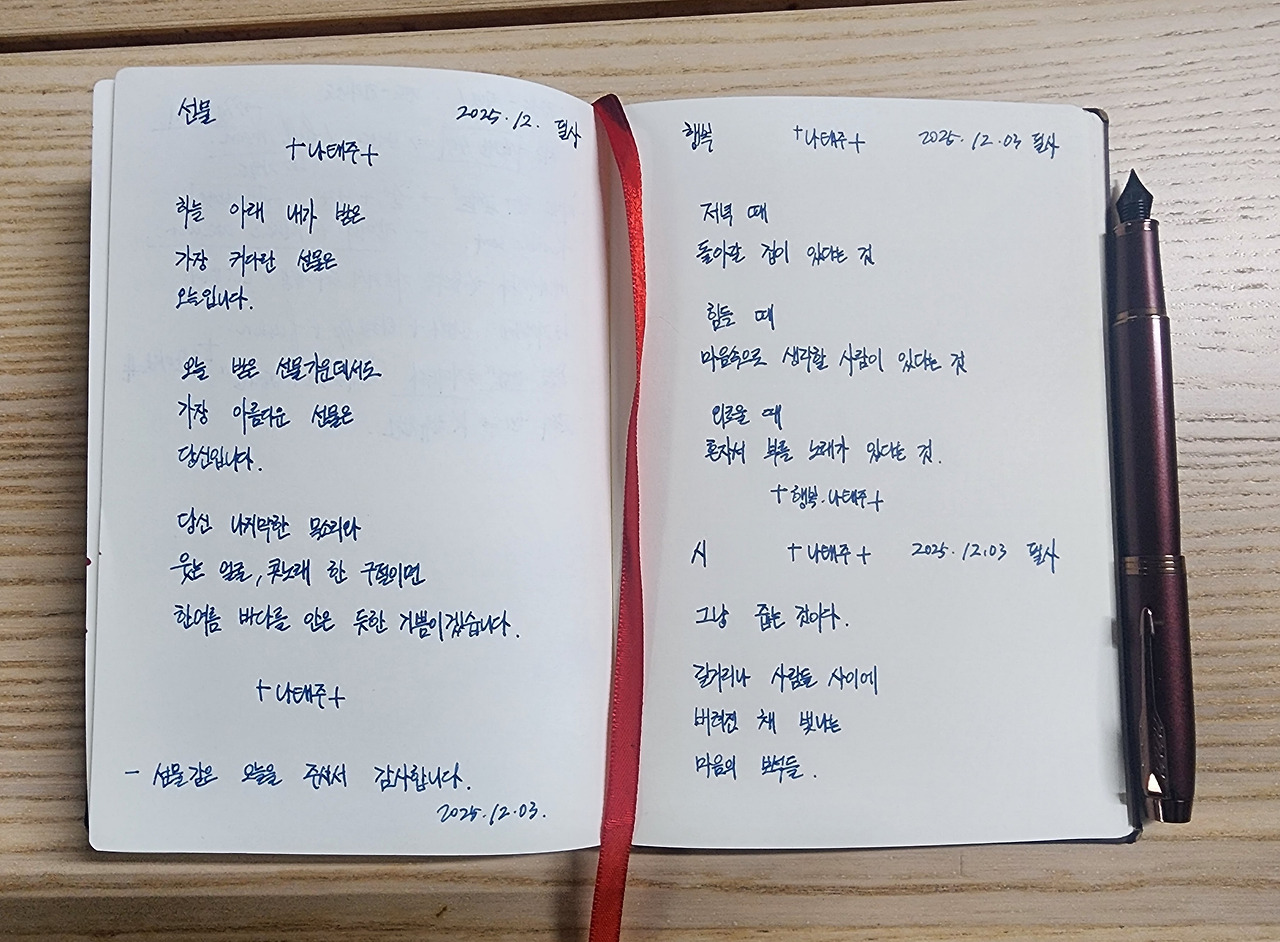 선물 2025.12. 필사
+나태주+
하늘 아래 내가 받은
가장 커다란 선물은
오늘입니다.
오늘 받은 선물가운데서도
가장 아름다운 선물은
당신입니다.
당신 나지막한 목소리와
웃는 얼굴, 콧노래 한 구절이면
한여름 바다를 안은 듯한 기쁨이겠습니다.
+나태주+
- 선물같은 오늘을 주셔서 감사합니다.
2025.12.03.
행복 +나태주+ 2025.12.03 필사
저녁 때
돌아갈 집이 있다는 것
힘들 때
마음속으로 생각할 사람이 있다는 것
외로울 때
혼자서 부를 노래가 있다는 것.
+행복.나태주+
시 +나태주+ 2025.12.03 필사
그냥 줍는 것이다.
길거리나 사람들 사이에
버려진 채 빛나는
마음의 보석들.